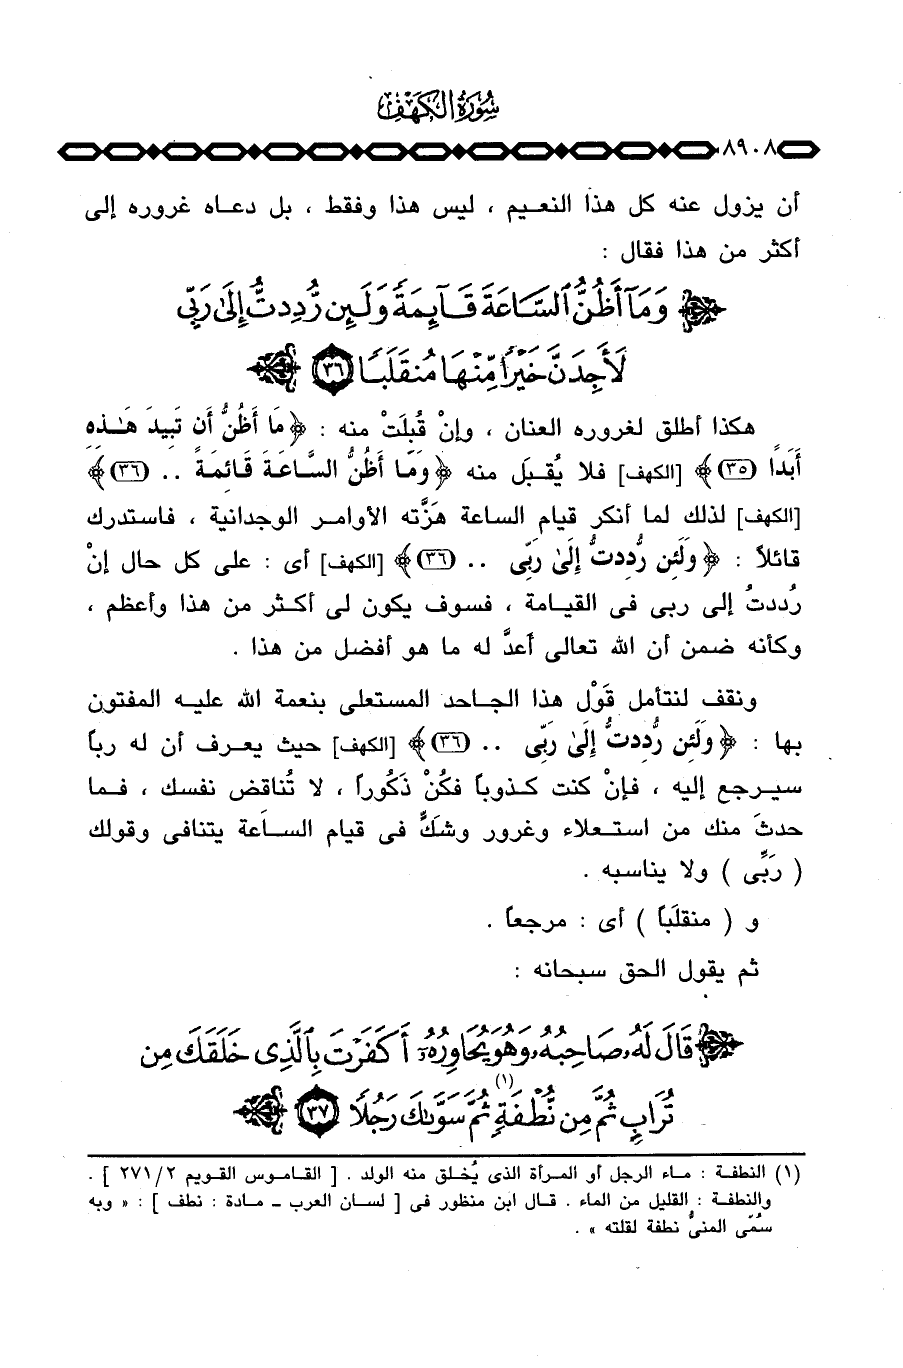 سُورَةُ الكَهْفِ
٨٩٠٨
أن يزول عنه كل هذا النعيم ، ليس هذا وفقط ، بل دعاه غروره إلى
أكثر من هذا فقال :
وَمَآ أَظُنُّ ٱلسَّاعَةَ قَآئِمَةً وَلَئِن رُّدِدتُّ إِلَىٰ رَبِّى
لَأَجِدَنَّ خَيْرًا مِّنْهَا مُنقَلَبًا ٣٦
هكذا أطلق لغروره العنان ، وإنْ قُبلَتْ منه : ﴿ مَا أَظُنُّ أَن تَبِيدَ هَـٰذِهِ
أَبَدًا (٣٥) ﴾ [الكهف] فلا يُقبَل منه ﴿ وَمَا أَظُنُّ السَّاعَةَ قَائِمَةً .. (٣٦) ﴾
[الكهف] لذلك لما أنكر قيام الساعة هَزَّته الأوامر الوجدانية ، فاستدرك
قائلاً : ﴿ وَلَئِن رُّدِدتُّ إِلَىٰ رَبِّى .. (٣٦) ﴾ [الكهف] أى : على كل حال إنْ
رُددتُ إلى ربى فى القيامة ، فسوف يكون لى أكثر من هذا وأعظم ،
وكأنه ضمن أن الله تعالى أعدَّ له ما هو أفضل من هذا .
ونقف لنتأمل قَوْل هذا الجاحد المستعلى بنعمة الله عليه المفتون
بها : ﴿ وَلَئِن رُّدِدتُّ إِلَىٰ رَبِّى .. (٣٦) ﴾ [الكهف] حيث يعرف أن له رباً
سيرجع إليه ، فإنْ كنت كذوباً فكُنْ ذَكُوراً ، لا تُناقض نفسك ، فما
حدثَ منك من استعلاء وغرور وشكٍّ فى قيام الساعة يتنافى وقولك
( رَبِّى ) ولا يناسبه .
و ( منقلَباً ) أى : مرجعاً .
ثم يقول الحق سبحانه :
قَالَ لَهُۥ صَاحِبُهُۥ وَهُوَ يُحَاوِرُهُۥٓ أَكَفَرْتَ بِٱلَّذِى خَلَقَكَ مِن
تُرَابٍ ثُمَّ مِن نُّطْفَةٍ (١) ثُمَّ سَوَّىٰكَ رَجُلًا ٣٧
(١) النطفة : ماء الرجل أو المرأة الذى يُخلق منه الولد . [ القاموس القويم ٢٧١/٢ ] .
والنطفة : القليل من الماء . قال ابن منظور فى [ لسان العرب ـ مادة : نطف ] : « وبه
سُمّى المنىُّ نطفة لقلته » .